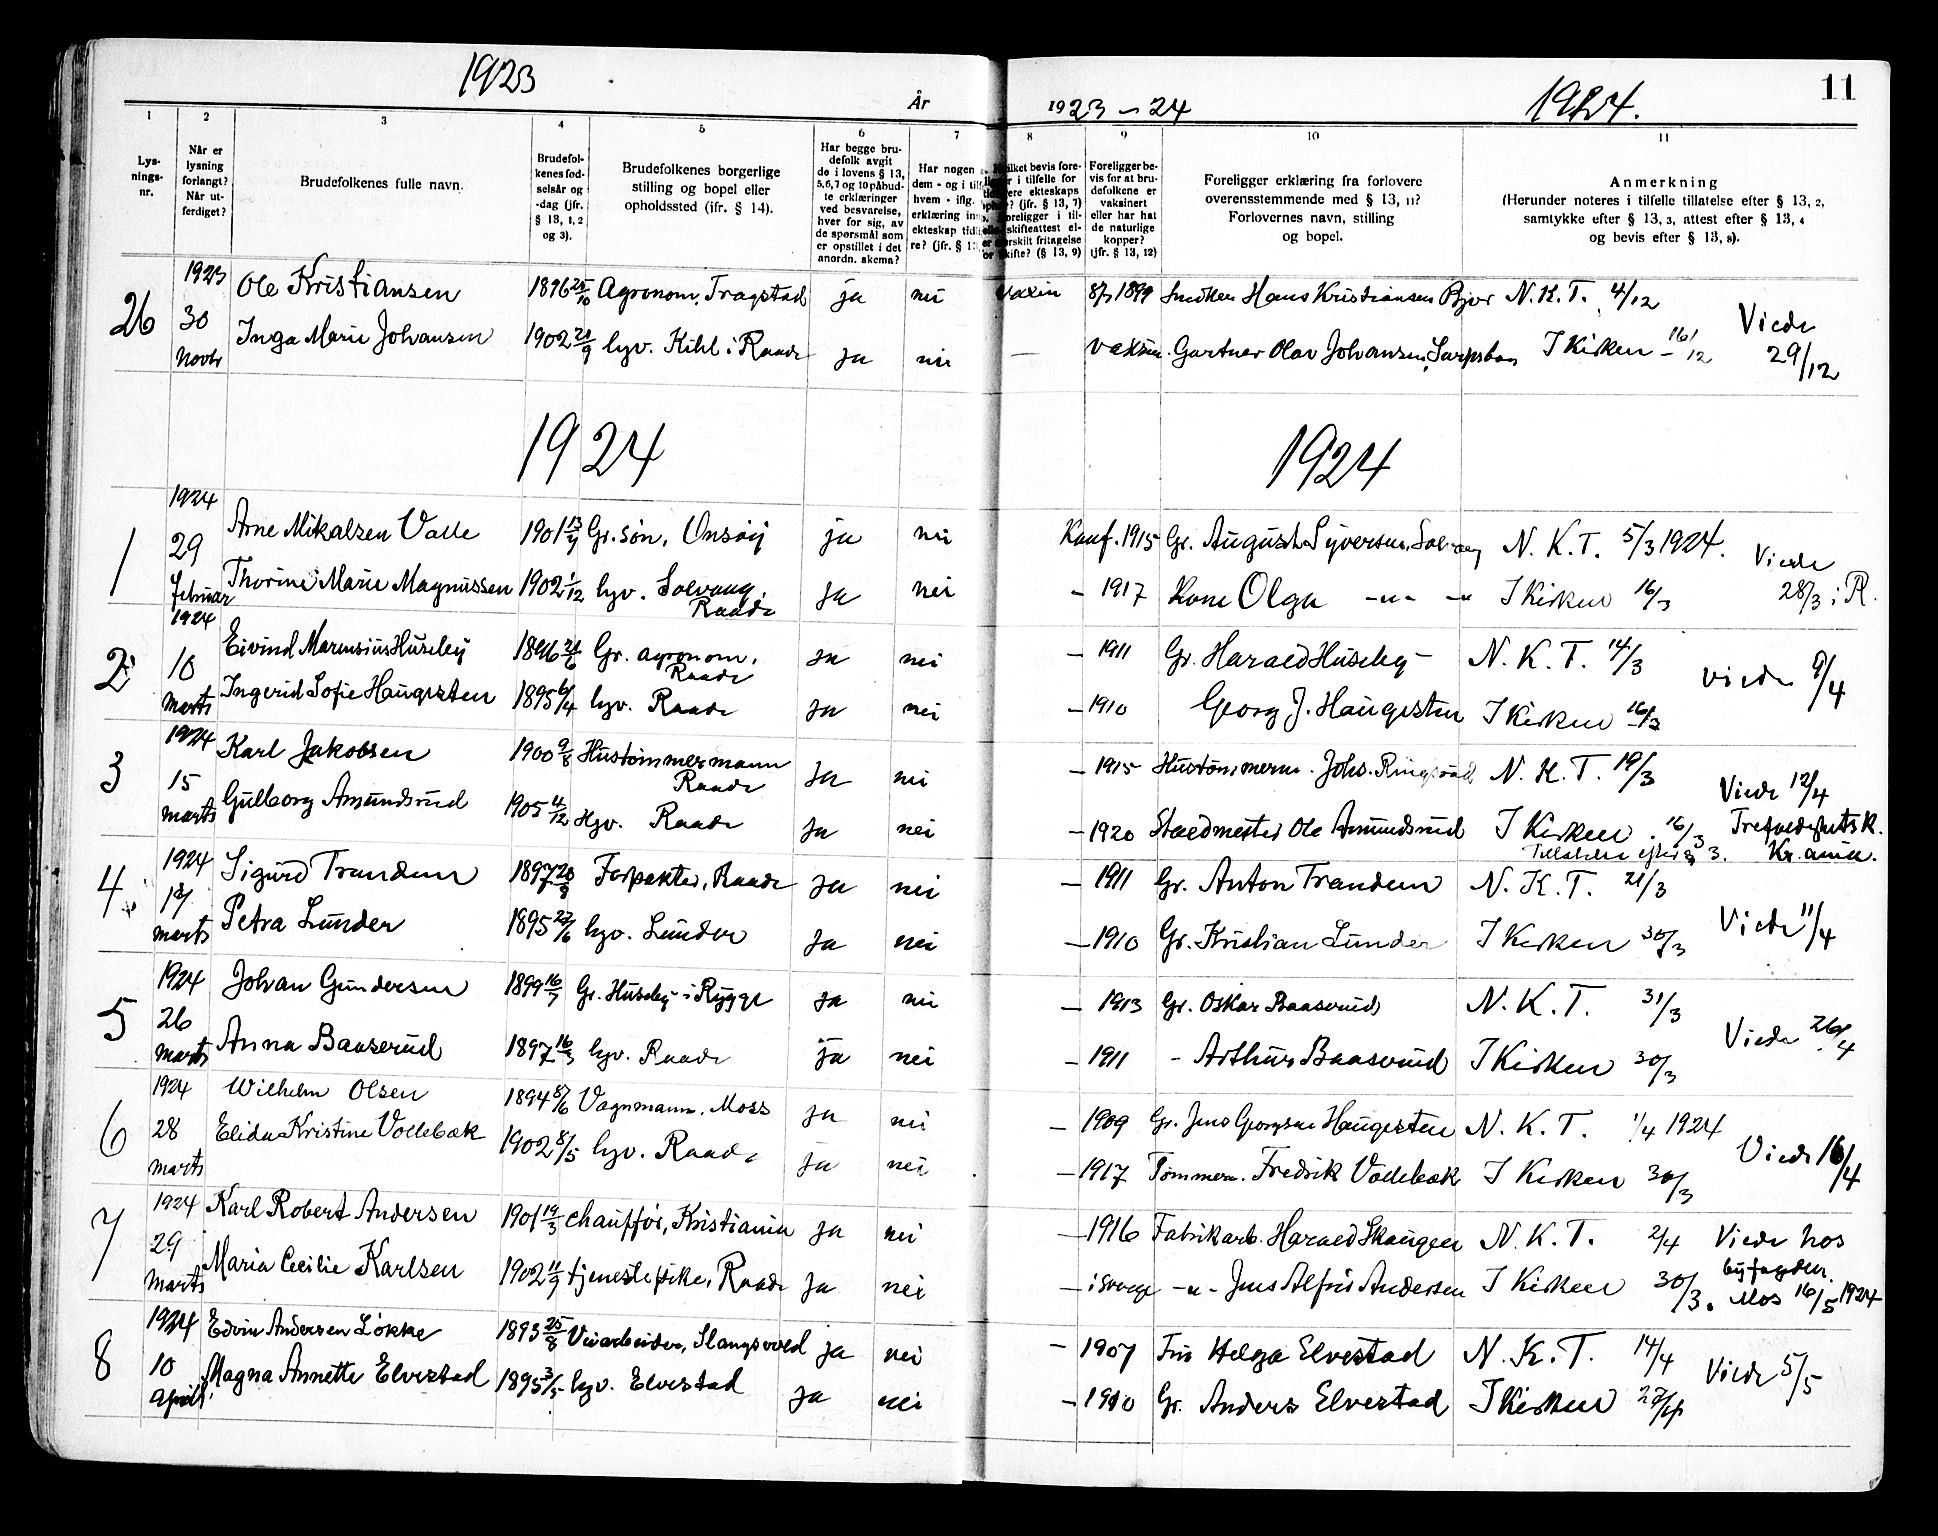 1923
År
1923 – 24
1924.
11
1
2
3
4
5
6
7
8
9
10
11
Lys-
nings-
nr.
Når er
lysning
forlangt?
Når ut-
ferdiget?
Brudefolkenes fulle navn.
Brudefol-
kenes fød-
selsår og
-dag (jfr.
§ 13, 1, 2
og 3).
Brudefolkenes borgerlige
stilling og bopel eller
opholdssted (jfr. § 14).
Har begge bru-
defolk avgit
de i lovens § 13,
5, 6, 7 og 10 påbud-
te erklæringer
ved besvarelse,
hver for sig, av
de spørsmål som
er opstillet i det
anordn. skema?
Har nogen
dem - og i tilf
hvem - iflg.
erklæring inn
ekteskap tidl
re? (jfr. § 13
ilket bevis fore-
r i tilfelle for
ere ekteskaps
? (jfr. § 13, 7)
oreligger i til-
skifteattest el-
rskilt fritagelse
skifte? (§ 13, 9)
Foreligger be-
vis for at bru-
defolkene er
vaksinert
eller har hat
de naturlige
kopper?
(jfr. § 13, 12)
Foreligger erklæring fra forlovere
overensstemmende med § 13, 11?
Forlovernes navn, stilling
og bopel.
Anmerkning
(Herunder noteres i tilfelle tillatelse efter § 13, 2,
samtykke efter § 13, 3, attest efter § 13, 4
og bevis efter § 13, 8).
26
1923
30
Novbr
Ole Kristiansen 1896 25/10 Agronom, Trøgstad ja nei vaxin 8/7 1899 Snedker Hans Kristiansen Bjor N. K. T. 4/12
Inga Marie Johansen 1902 21/9 hgv. Kihl i Raade ja nei — vaksin. Gartner Olav Johansen, Sarpsborg I Kirken – 16/12
Viede
29/12
1924
1924
1
1924
29
februar
Arne Mikalsen Valle 1901 13/9 Gr. søn, Onsøy ja nei Konf. 1915 Gr. August Syversen, Solvang N. K. T. 5/3 1924.
Thorine Marie Magnussen 1902 1/12 hgv. Solvang, Raade ja nei – 1917 Kone Olga –"– –" I Kirken 16/3
Viede
28/3 i R.
2
1924
10
marts
Eivind Marensius Huseby 1896 21/6 Gr. agronom, Raade ja nei – 1911 Gr. Harald Huseby – N. K. T. 14/3
Ingerid Sofie Haugesten 1895 6/4 hgv. Raade ja nei – 1910 Georg J. Haugesten I Kirken 16/3
viede 9/4
3
1924
15
marts
Karl Jakobsen 1900 9/8 Hustømmermann Raade ja nei – 1915 Hustømmerm. Johs. Ringstad N. K. T. 19/3
Gulborg Amundsrud 1905 4/12 Hgv. Raade ja nei – 1920 Ole Amundsrud I Kirken 16/3
Tillatelse efter § 3.
Viede 12/4
Trefoldighetsk.
Kr.ania.
4
1924
18/
marts
Sigurd Trandem 1897 20/8 Forpakter, Raade ja nei – 1911 Gr. Anton Trandem N. K. T. 21/3
Petra Lunder 1895 27/6 hgv. Lunder ja nei – 1910 Gr. Kristian Lunder I Kirken 30/3
Viede 11/4
5
1924
26
marts
Johan Gundersen 1899 16/7 Gr. Huseby i Rygge ja nei – 1913 Gr. Oskar Baaserud N. K. T. 31/3
Anna Baaserud 1897 16/3 hgv. Raade ja nei – 1911 – Arthur Baaserud I Kirken 30/3
Viede 26/4
6
1924
28
marts
Wilhelm Olsen 1894 8/6 Vognmann. Moss ja nei – 1909 Gr. Jens Georgsen Haugesten N. K. T. 1/4 1924
Elida Kristine Vollebæk 1902 8/5 hgv. Raade ja nei – 1917 Tømmerm. Fredrik Vollebæk I Kirken 30/3
Viede 16/4
7
1924
29
marts
Karl Robert Andersen 1901 19/3 chauffør, Kristiania ja nei – 1916 Fabrikarb. Harald Skaugen N. K. T. 2/4
Maria Cecilie Karlsen 1902 11/9 tjenestepike, Raade ja nei – i Sverge –"– Jens Alfred Andersen I Kirken 30/3.
Viede hos
byfogden.
Mos 16/5 1924
8
1924
10
april
Edvin Andersen Løkke 1893 25/8 Veiarbeider, Slangsvold ja nei – 1907 Fru Helga Elvestad N. K. T. 14/4
Magna Annette Elvestad 1895 3/5 hgv. Elvestad ja nei – 1910 Gr. Anders Elvestad I Kirken 27/4
Viede 5/5